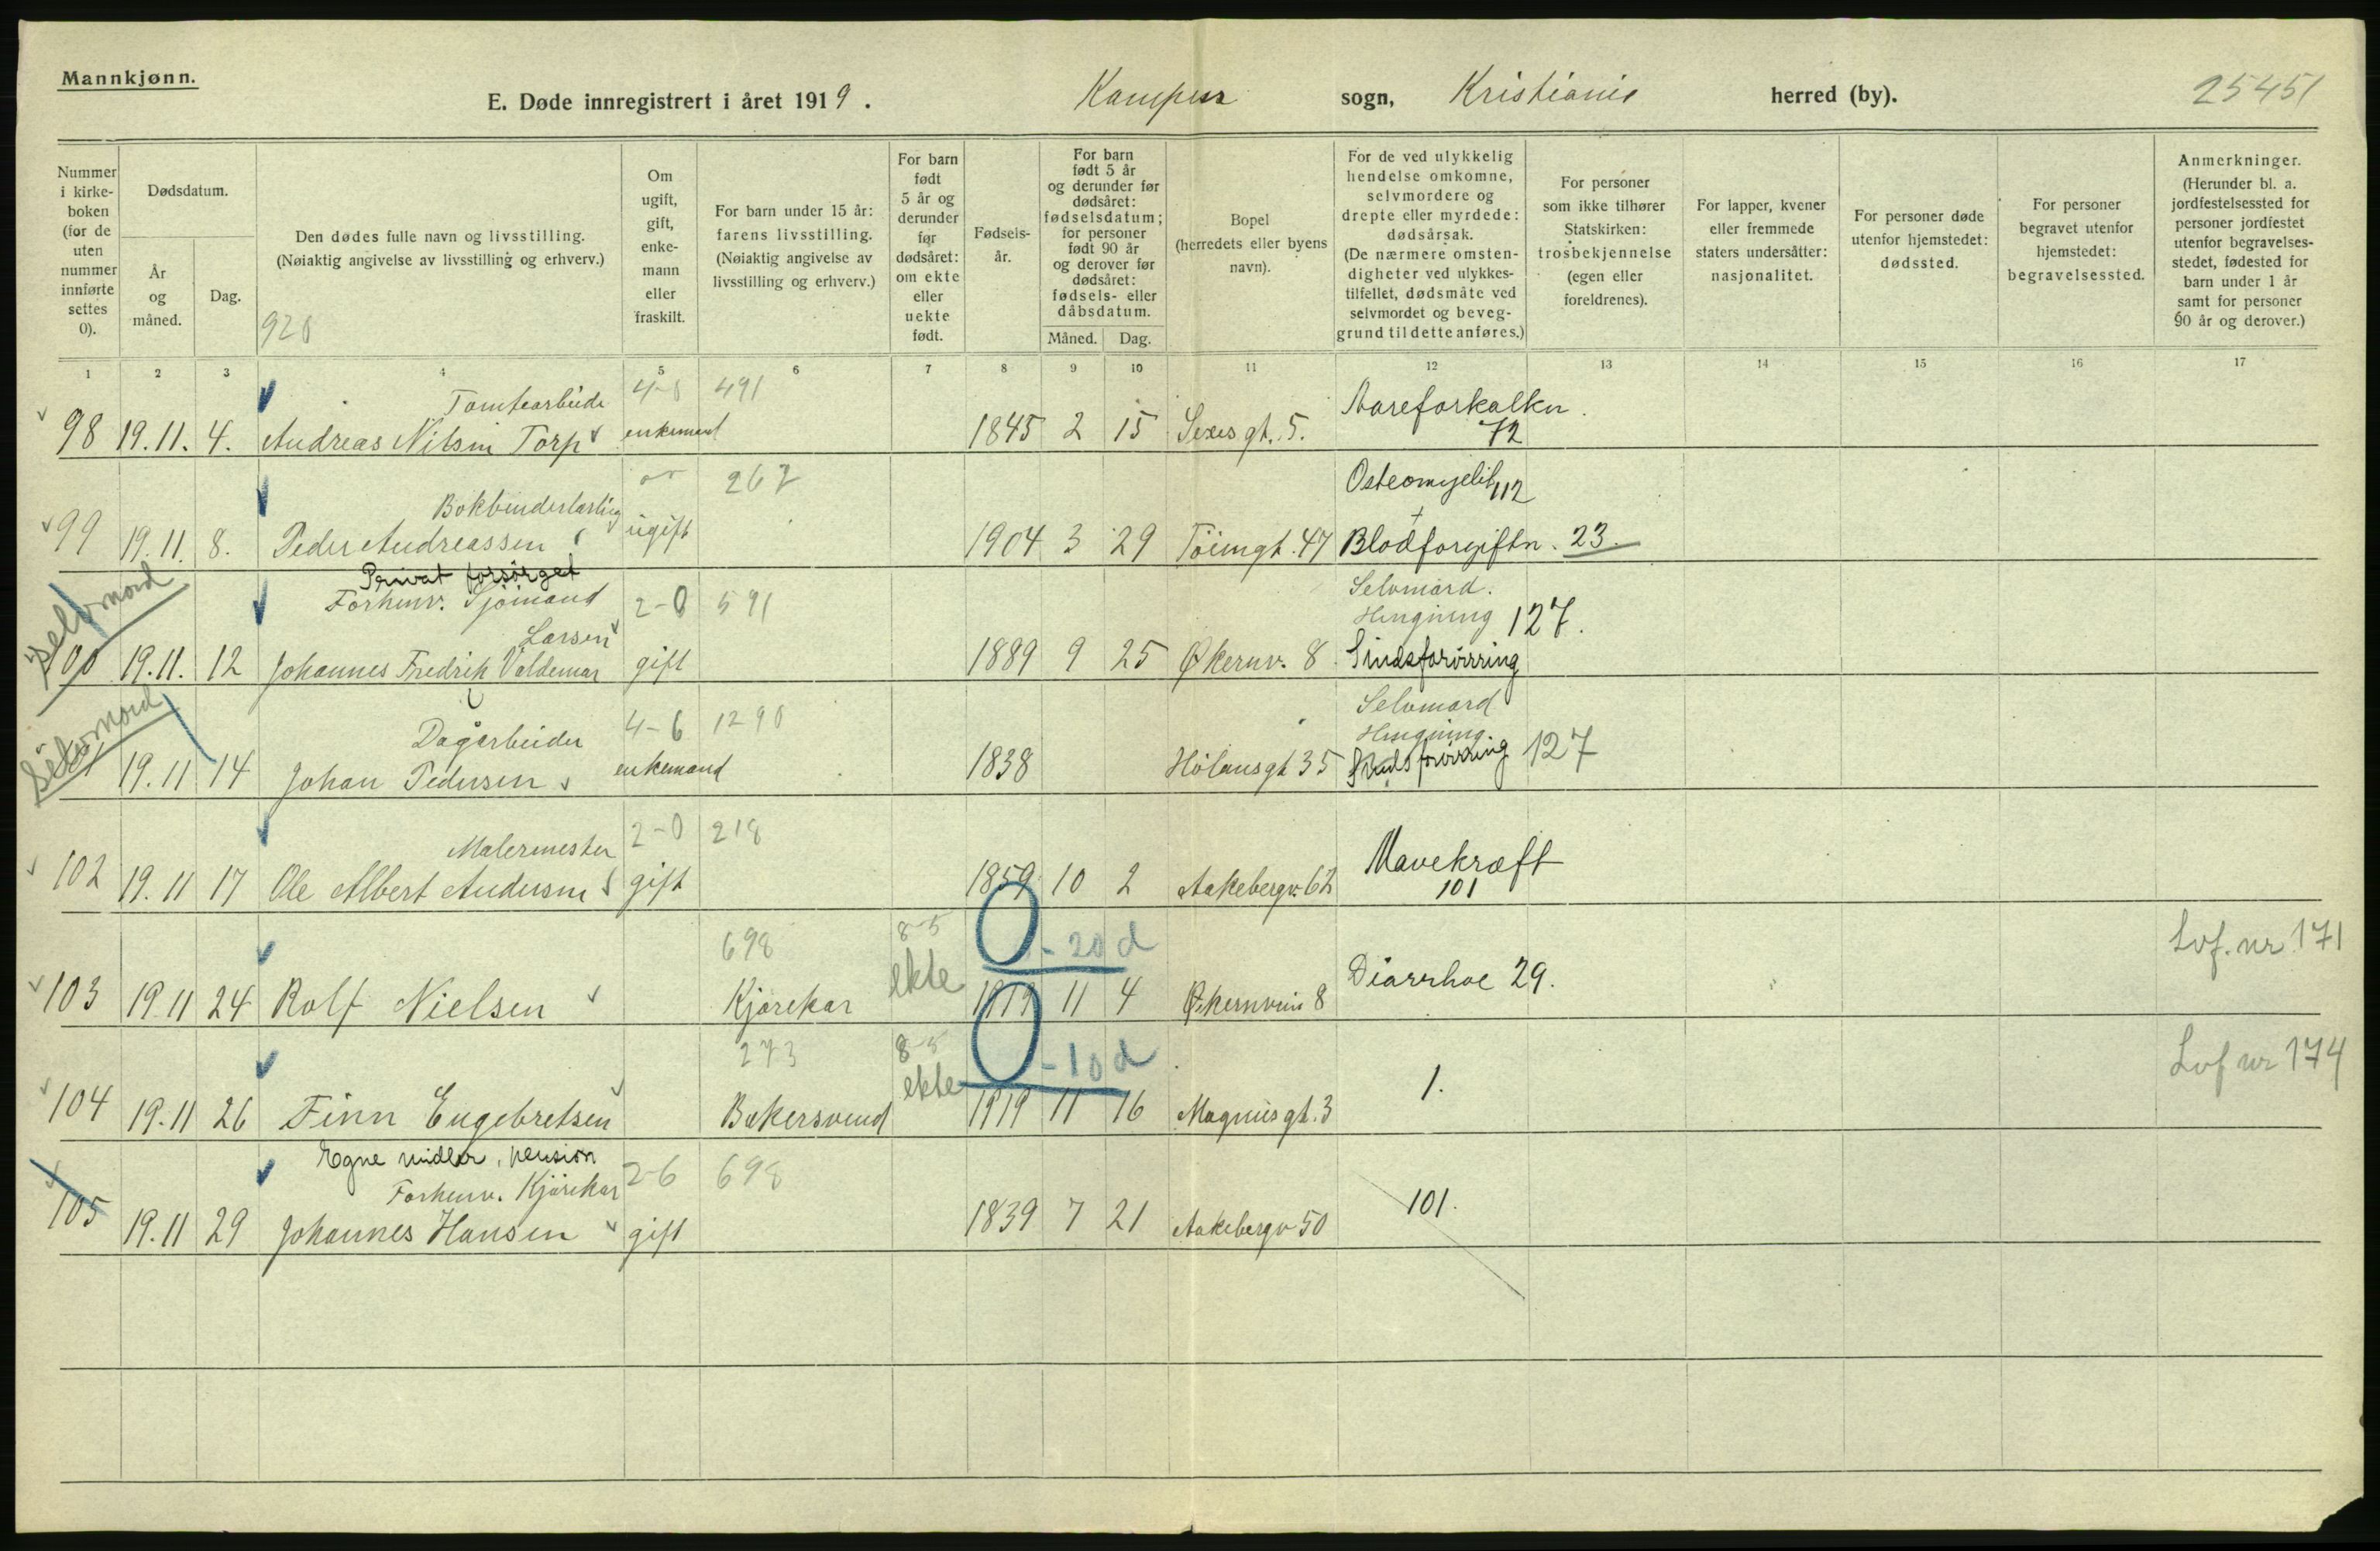 Mannkjønn.
E. Døde innregistrert i året 1919. Kampen sogn, Kristiania herred (by). 25451
Nummer i kirke-boken (for de uten nummer innførte settes 0).
Dødsdatum.
År og måned.
Dag.
Den dødes fulle navn og livsstilling. (Nøiaktig angivelse av livsstilling og erhverv.)
920
Om ugift, gift, enke-mann eller fraskilt.
For barn under 15 år: farens livsstilling. (Nøiaktig angivelse av livsstilling og erhverv.)
For barn født 5 år og derunder før dødsåret: om ekte eller uekte født.
Fødsels-år.
For barn født 5 år og derunder før dødsåret: fødselsdatum; for personer født 90 år og derover før dødsåret: fødsels- eller dåbsdatum.
Måned. Dag.
Bopel (herredets eller byens navn).
For de ved ulykkelig hendelse omkomne, selvmordere og drepte eller myrdede: dødsårsak. (De nærmere omsten-digheter ved ulykkes-tilfellet, dødsmåte ved selvmordet og beveg-grund til dette anføres.)
For personer som ikke tilhører Statskirken: trosbekjennelse (egen eller foreldrenes).
For lapper, kvener eller fremmede staters undersåtter: nasjonalitet.
For personer døde utenfor hjemstedet: dødssted.
For personer begravet utenfor hjemstedet: begravelsessted.
Anmerkninger. (Herunder bl. a. jordfestelsessted for personer jordfestet utenfor begravelses-stedet, fødested for barn under 1 år samt for personer 90 år og derover.)
1 2 3 4 5 6 7 8 9 10 11 12 13 14 15 16 17
Tomtearbeide 4-0 491 Aareforkalkn.
98 19.11. 4. Andreas Nilsen Torp enkemand 1845 2 15 Sexes gt. 5. 72
Bokbinderlærling 267 Osteomyelit 112
99 19.11. 8. Peder Andreassen ugift 1904 3 29 Töiengt. 47 + Blodforgiftn. 23.
Selvmord
Privat forsørget Selvmord.
Forhenv. Sjömand 2-0 591 Hengning 127.
Larsen
100 19.11. 12 Johannes Fredrik Valdemar gift 1889 9 25 Økernv. 8. Sindsforvirring
Selvmord
Selvmord
Dagarbeider 4-6 1290 Hengning.
19.11 14 Johan Pedersen enkemand 1838 Hölansgt 35 Sindsforvirring 127
Malermester 2-0 218 Mavekræft
102 19.11 17 Ole Albert Andersen gift 1859 10 2 Aakebergv. 62 101
698 8-5 0 - 20 d Lvf. nr 171
103 19.11 24 Rolf Nielsen Kjørekar ekte 1919 11 4 Økernveien 8 Diarrhoe 29.
273 8-5 0 - 10 d Lvf nr 174
104 19.11 26 Finn Engebretsen Bakersvend ekte 1919 11 16 Magnusgt. 3 1.
Egne midler, pension
Forhenv. Kjørekar 2-6 698
105 19.11 29 Johannes Hansen gift 1839 7 21 Aakebergv 50 101.